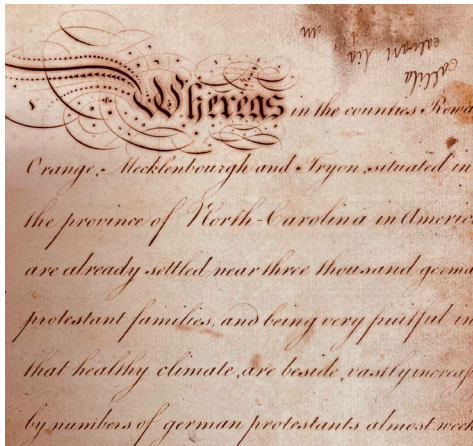 Whereas in the counties Rowa
Orange, Mecklenbourgh and Tryon, situated in
the province of North-Carolina in Americ
are already settled near three thousand germa
protestant families, and being very fruitful in
that healthy climate, are beside, vastly increas
by numbers of german protestants almost week